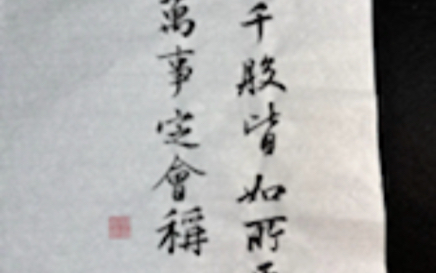 千般皆如所
萬事定會稱